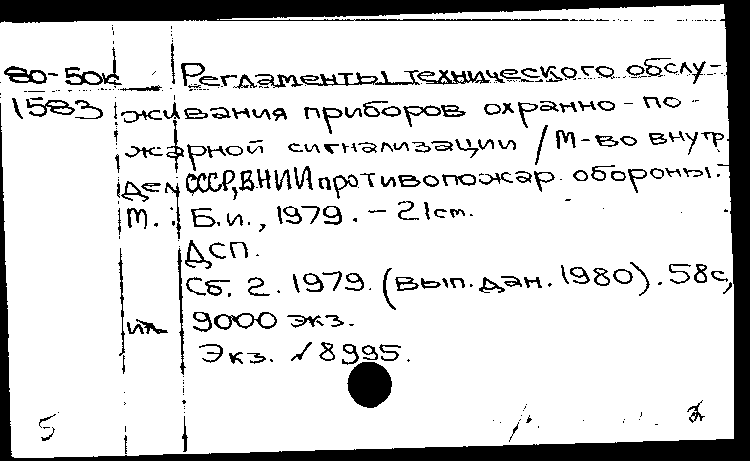 80-50к Регламенты технического обслу-
1583 живания приборов охранно-по-
жарной сигнализации / М-во внутр.
дел СССР, ВНИИ противопожар. обороны. -
М. : Б.и., 1979. - 21см.
ДСП.
Сб. 2. 1979. (вып. дан. 1980). 58с,
ил 9000 экз.
Экз. №8995.
5